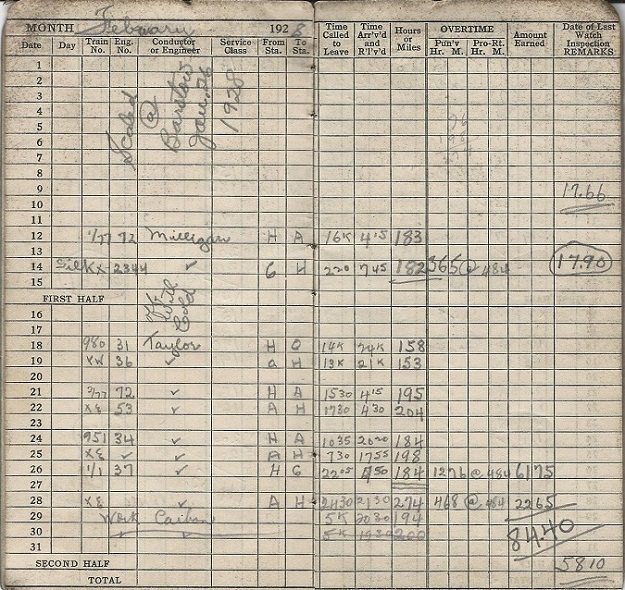 MONTH February 1928
Time Called to Leave Time Arr'v'd and R'l'v'd Hours or Miles OVERTIME Amount Earned Date of Last Watch Inspection REMARKS
Date Day Train No. Eng. No. Conductor or Engineer Service Class From Sta. To Sta. Pun'v Hr. M. Pro-Rt. Hr. M.
Scaled @ Barstow Jan. 26 1928
1
2
3
4
5
6
7
8
9 17.66
10
11
12 1/77 72 Milligan H A 16K 4 15 183
13
14 Silk X 2344 ✓ G H 220 7 45 182 365 @ .484 17.90
15
FIRST HALF
16
17
18 980 31 Taylor H 14K 158
19 36 ✓ H 13K 21K 153
20
21 72 ✓ H A 1530 4 15 195
22 XE 53 ✓ A H 1730 4 30 204
23
24 951 34 ✓ H A 1035 2020 184
25 XE ✓ ✓ A H 730 1755 198
26 1/1 37 ✓ H G 2205 184 1276 @ .484 6175
27
28 XE ✓ A H 2130 274 468 @ .484 2265
29 Work 5K 2030 194
30 84.40
31
SECOND HALF 5810
TOTAL